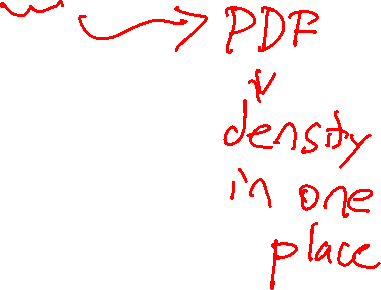 PDF
density
in one
place